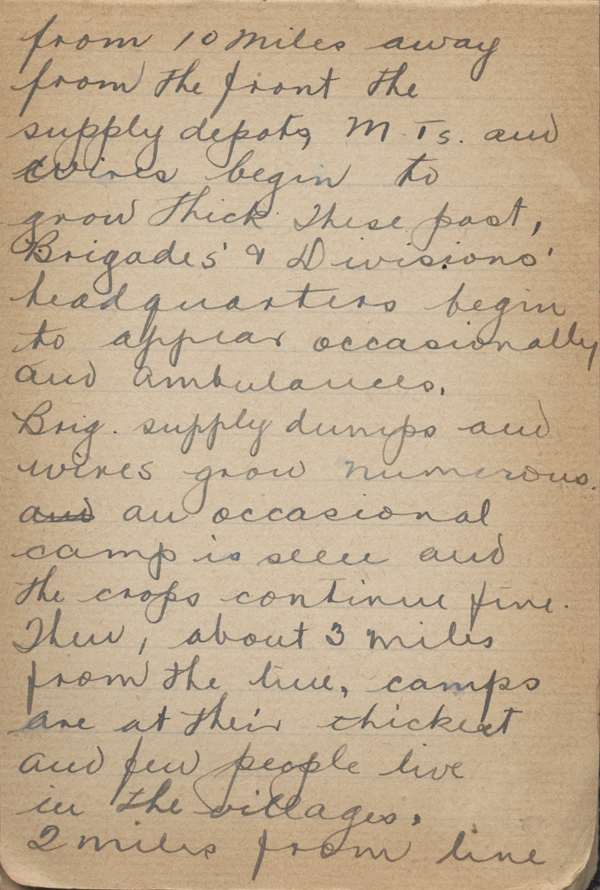 from 10 miles away
from the front the
supply depots, M.Ts. and
wires begin to
grow thick These past,
Brigades' & Divisions'
headquarters begin
to appear occasionally
and ambulances.
Brig. supply dumps and
wires grow numerous.
and an occasional
camp is seen and
the crops continue fine.
Then, about 3 miles
from the line, camps
are at their thickest
and few people live
in the villages.
2 miles from line